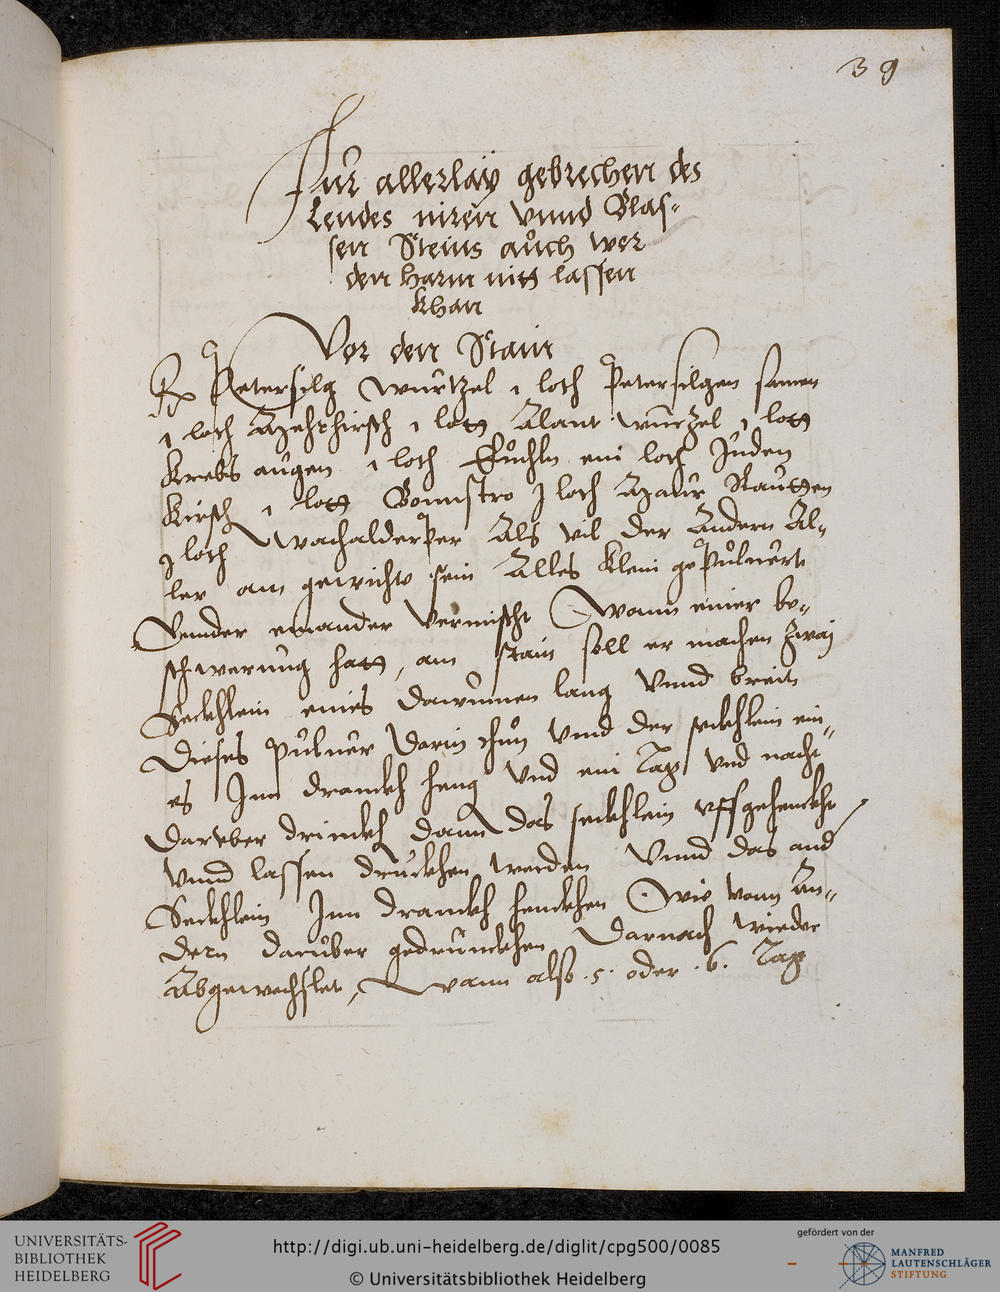 39
Fur allerlaÿ gebrechen des
Lendes niren vnnd Blas-
sen Steins auch wer
den harm nitt lassen
khan
Vor den Stain
Rx Petersilg wurtzel 1 loth Petersilgen samen
1 loth Mehrhirsch 1 lott Alant wurzel 1 lott
Krebs augen 1 loth ein loth Juden
Kirsch 1 lott loth Maur Rautten
loth Wachalderper Als vil der Andern Al-
ler am gewicht sein Alles klein gepuluert
Vnnder einander vermischt Wann einer be-
schwerung hatt, am stain soll er machen zwaj
Seckhlein eines daumen lang vnnd breit
Dieses puluer darin thun vnnd der seckhlein ein-
es Inn dranckh heng vnd ein Tag vnd nacht
daruber drinckh dann das seckhlein vffgehenckht
vnnd lassen druckhen werden Vnnd das and
Seckhlein Inn dranckh henckhen Wie vom An-
dern daruber gedrunckhen Darnach wieder
Abgewechslet, Wann also .5. oder .6. Tag
UNIVERSITÄTS-
BIBLIOTHEK
HEIDELBERG
http://digi.ub.uni-heidelberg.de/diglit/cpg500/0085
© Universitätsbibliothek Heidelberg
gefördert von der
MANFRED
LAUTENSCHLÄGER
STIFTUNG